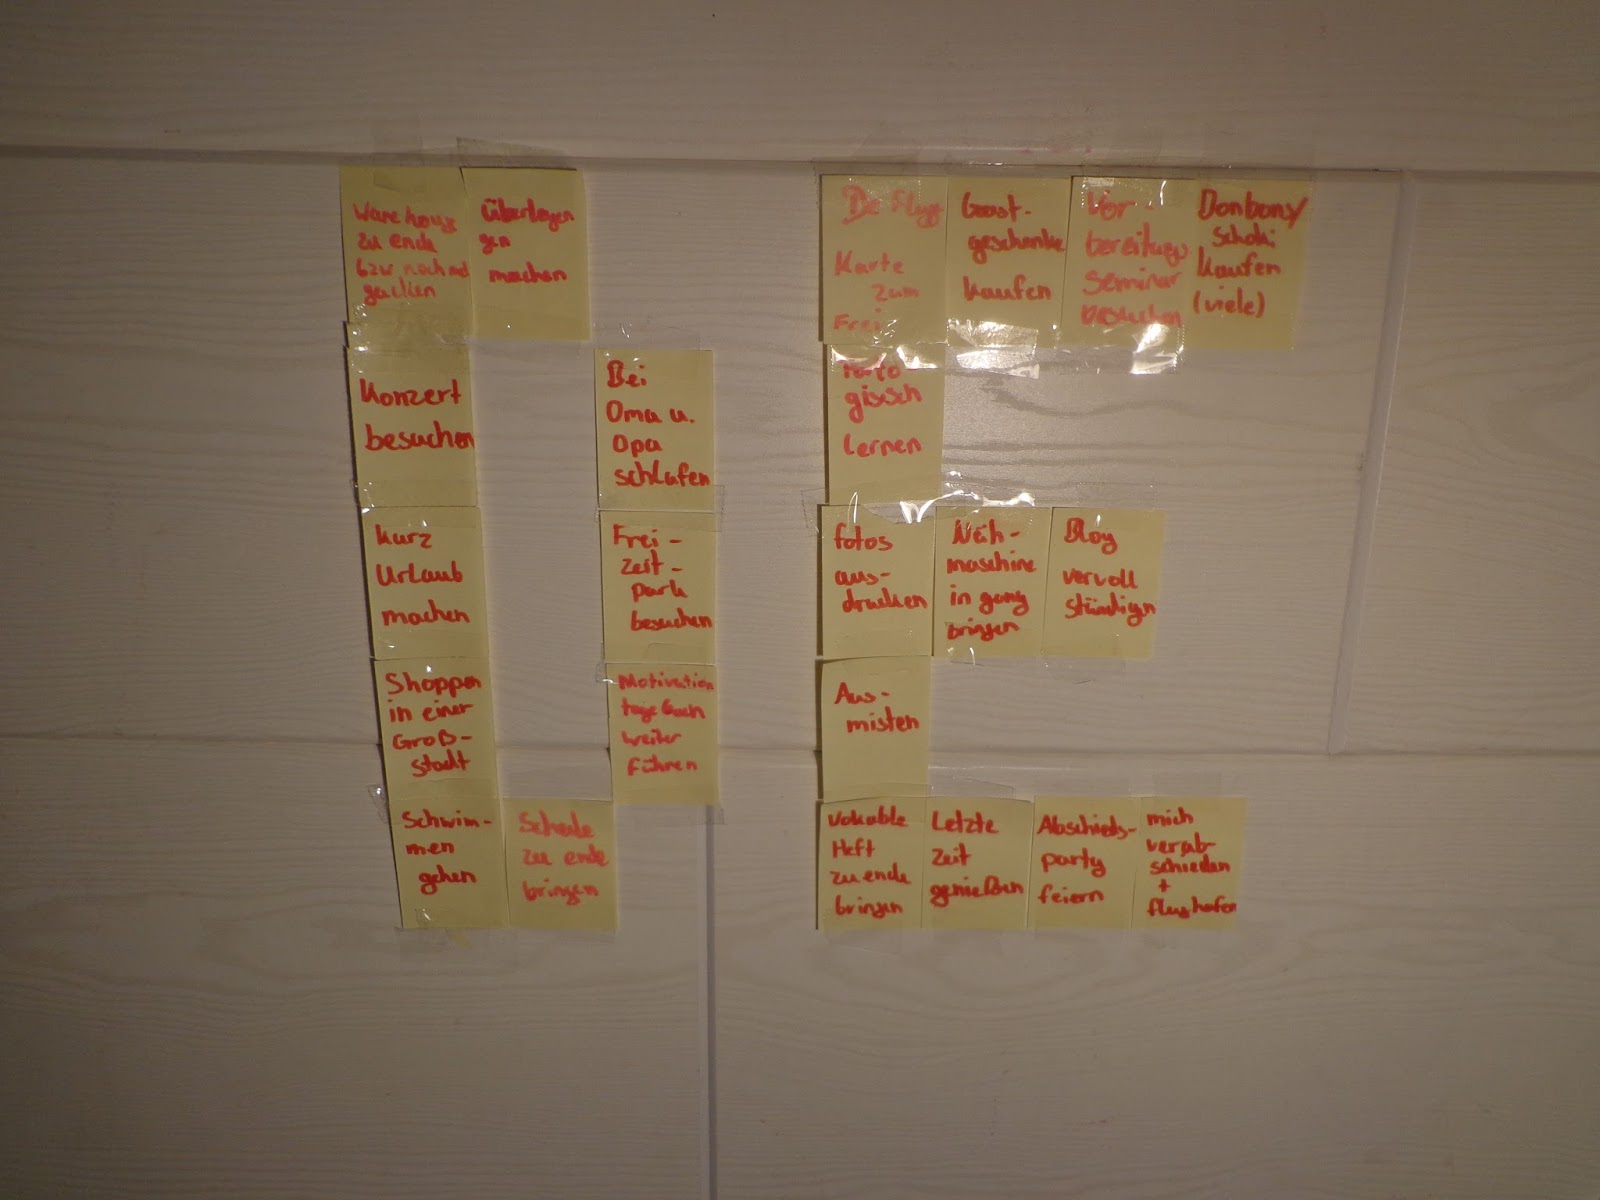 Warehouse
zu ende
bzw noch mal
gucken
Überlegen
gen
machen
Konzert
besuchen
Bei
Oma u.
Opa
schlafen
kurz
Urlaub
machen
Frei-
zeit-
park
besuchen
Shoppen
in einer
Groß-
stadt
Motivation
tage Buch
weiter
führen
Schwim-
men
gehen
Schule
zu ende
bringen
Karte
zum
Frei
Gast-
geschenke
kaufen
Vor-
bereitungs
seminar
besuchen
Bonbons/
Schoki
kaufen
(viele)
gisisch
lernen
fotos
aus-
drucken
Näh-
maschine
in gang
bringen
Blog
vervoll
ständign
Aus-
misten
Vokable
Heft
zu ende
bringen
Letzte
Zeit
genießen
Abschieds-
party
feiern
mich
verab-
schieden
+
flughafen